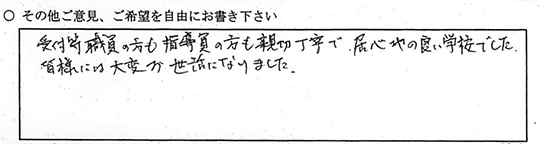 ○ その他ご意見、ご希望を自由にお書き下さい
受付等職員の方も指導員の方も親切丁寧で、居心地の良い学校でした。
皆様には大変お世話になりました。